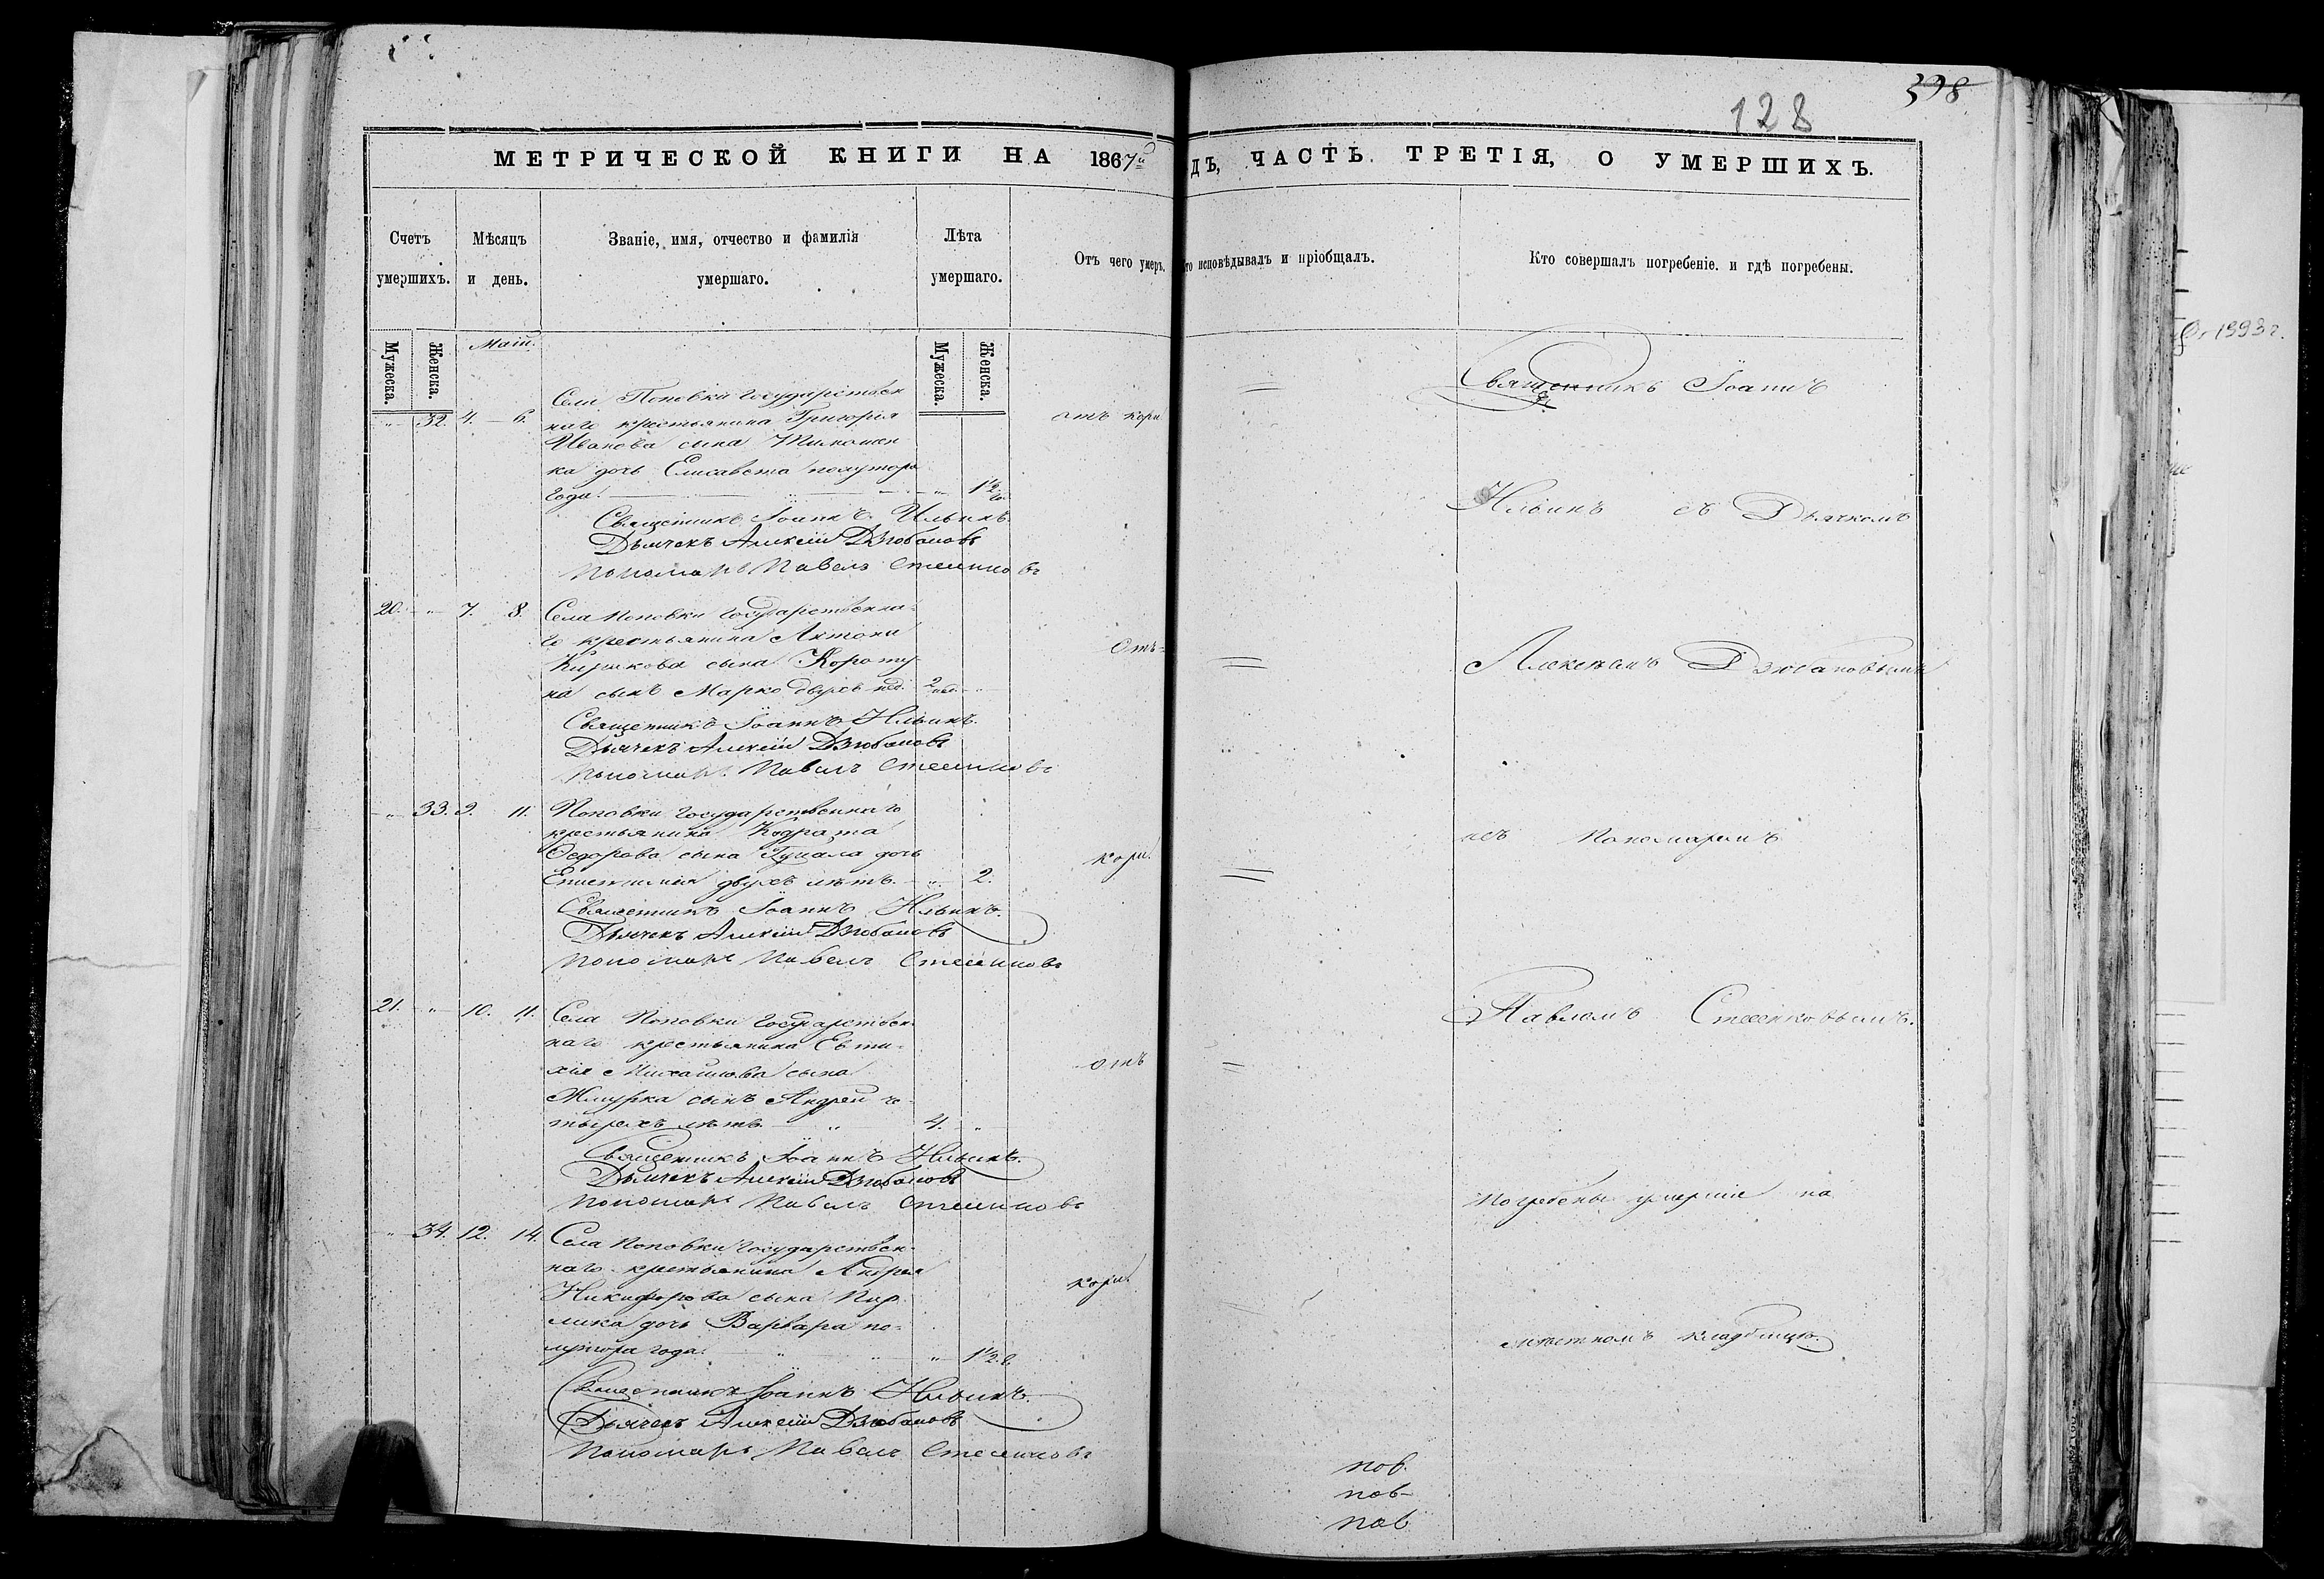 398
128
МЕТРИЧЕСКОЙ КНИГИ НА 1867й
ДЪ, ЧАСТЬ ТРЕТІЯ, О УМЕРШИХЪ.
Счетъ умершихъ.
Мѣсяцъ и день.
Званіе, имя, отчество и фамилія умершаго.
Лѣта умершаго.
Отъ чего умеръ.
то исповѣдывалъ и пріобщалъ.
Кто совершалъ погребеніе. и гдѣ погребены.
Мужеска. Женска.
Маій.
Мужеска. Женска.
32. 4. 6.
Села Поповки государствен
наго крестьянина Григорія
Иванова сына
ка дочь Елисавета полутора
года. 1½ г.
отъ кори
Священникъ Іоаннъ Ильинъ
Дьячекъ Алексій Дзюбановъ
Пономарь Павелъ Стесенковъ
20. 7. 8.
Села Поповки государственна
го крестьянина Антона
Кирикова сына Короту
на сынъ Марко двухъ нед. 2 нед.
Отъ
Священникъ Іоаннъ Ильинъ.
Дьячекъ Алексій Дзюбановъ
Пономарь Павелъ Стесенковъ
33. 9. 11.
Поповки государственнаго
крестьянина Кодрата
Ѳедорова сына дочь
двухъ лѣтъ. 2.
кори.
Священникъ Іоаннъ Ильинъ.
Дьячекъ Алексій Дзюбановъ
Пономарь Павелъ Стесенковъ
21. 10. 11.
Села Поповки государствен
наго крестьянина Евти
хія Михайлова сына
Жмурка сынъ Андрей че
тырехъ лѣтъ. 4.
отъ
Священникъ Іоаннъ Ильинъ.
Дьячекъ Алексій Дзюбановъ
Пономарь Павелъ Стесенковъ
34. 12. 14.
Села Поповки государствен
наго крестьянина Андрея
Никифорова сына
лика дочь Варвара по
лутора года. 1½ г.
кори.
Священникъ Іоаннъ Ильинъ.
Дьячекъ Алексій Дзюбановъ
Пономарь Павелъ Стесенковъ
Священникъ Іоаннъ
Ильинъ съ Дьячкомъ
Алексѣемъ Дзюбановымъ
Пономаремъ
Павломъ Стесенковымъ.
Погребены умершіе на
мѣстномъ кладбищѣ.
пов
пов
пов
1993 г.